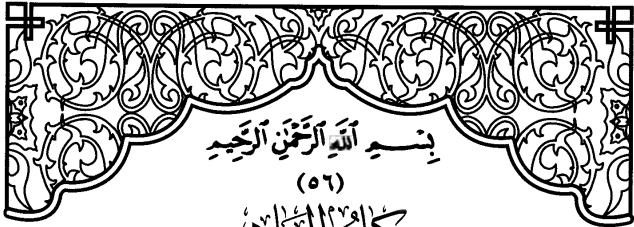 بِسْمِ ٱللَّهِ ٱلرَّحْمَٰنِ ٱلرَّحِيمِ
(٥٦)